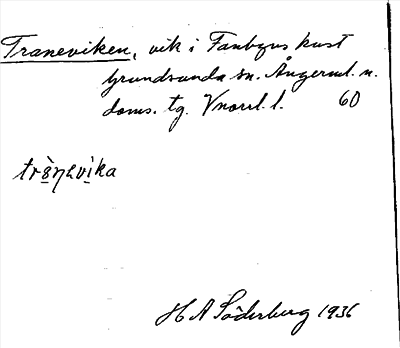 Traneviken, vik i Fanbyns kust
Grundsunda sn. Ångerml. n.
doms. tg. Vnorrl. l. 60
trànɛvika
H A Söderberg 1936